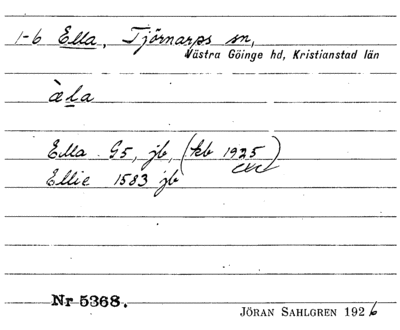 1-6 Ella, Tjörnarps sn,
Västra Göinge hd, Kristianstad län
àla
Ella G5, jb, (kb 1925)
Ellie 1583 jb
Nr 5368.
JÖRAN SAHLGREN 1926